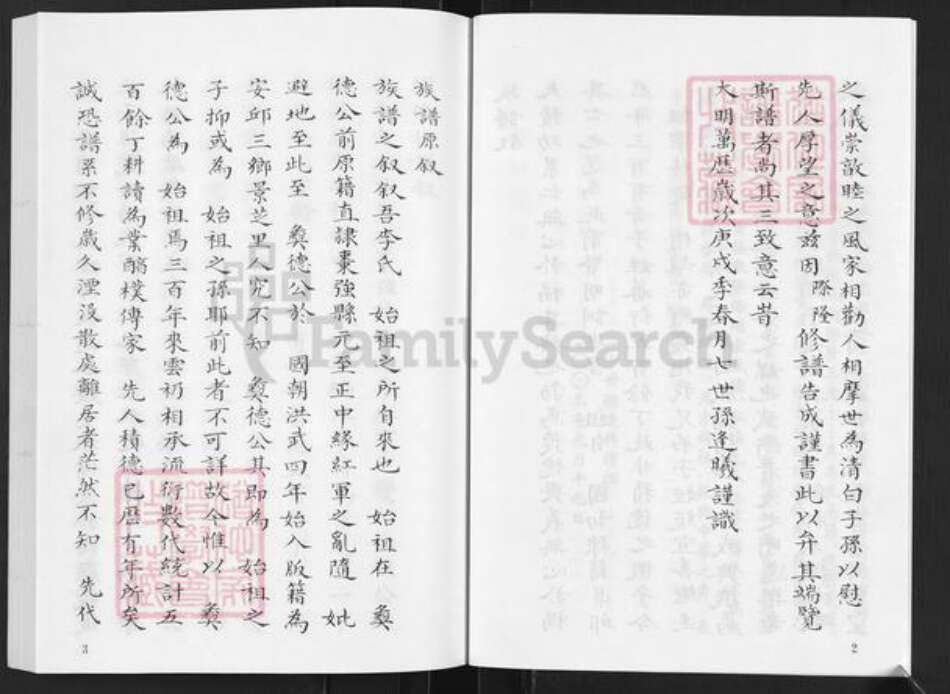 之儀崇敦睦之風家相勸人相摩世為清白子孫以慰
先人厚望之意茲因際隆修譜告成謹書此以弁其端覽
斯譜者尚其三致意云昔
大明萬歷歲次庚戌季春月七世孫逢曦謹識
2
族譜原叙
族譜之叙叙吾李氏 始祖之所自來也 始祖在 奠
德公前原籍直隸棗強縣元至正中緣紅軍之亂隨 妣
避地至此至 奠德公於 國朝洪武四年始入版籍為
安邱三鄉景芝里人究不知 奠德公其即為 始祖之
子抑或為 始祖之孫耶前此者不可詳故今惟以 奠
德公為 始祖焉三百年來雲礽相承流衍數代統計五
百餘丁耕讀為業醕樸傳家 先人積德已歷有年所矣
誠恐譜系不修歲久湮沒散處離居者茫然不知 先代
3
FamilySearch